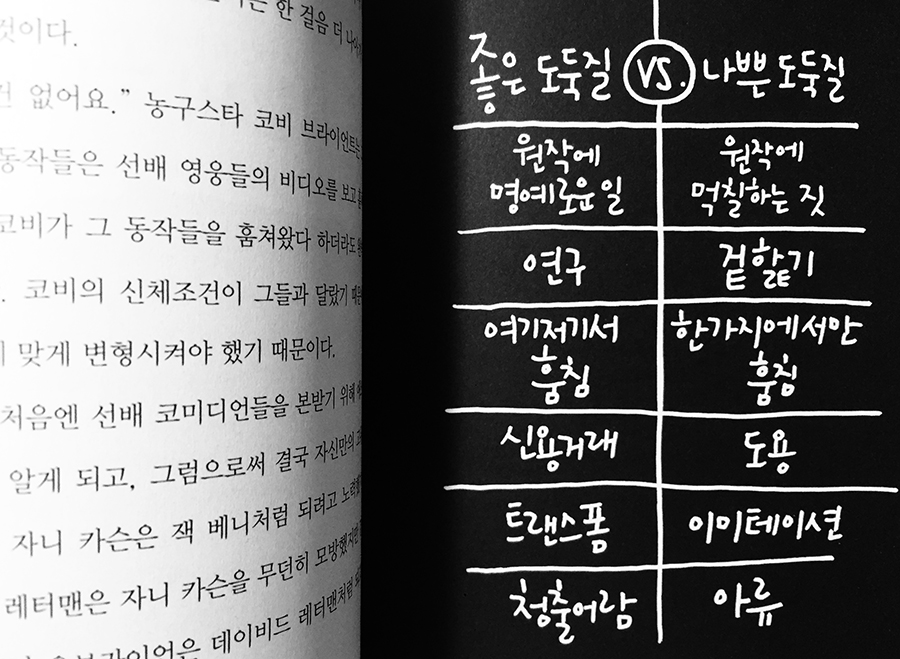 한 걸음 더
것이다.
없어요.” 농구스타 코비 브라이언트는
동작들은 선배 영웅들의 비디오를 보고
코비가 그 동작들을 훔쳐왔다 하더라도
코비의 신체조건이 그들과 달랐기 때문
맞게 변형시켜야 했기 때문이다.
처음엔 선배 코미디언들을 본받기 위해
알게 되고, 그럼으로써 결국 자신만의
자니 카슨은 잭 베니처럼 되려고 노력했
레터맨은 자니 카슨을 무던히 모방했지만
데이비드 레터맨처럼
좋은 도둑질 VS. 나쁜 도둑질
원작에 원작에
명예로운 일 먹칠하는 짓
연구 겉핥기
여기저기서 한가지에서만
훔침 훔침
신용거래 도용
트랜스폼 이미테이션
청출어람 아류